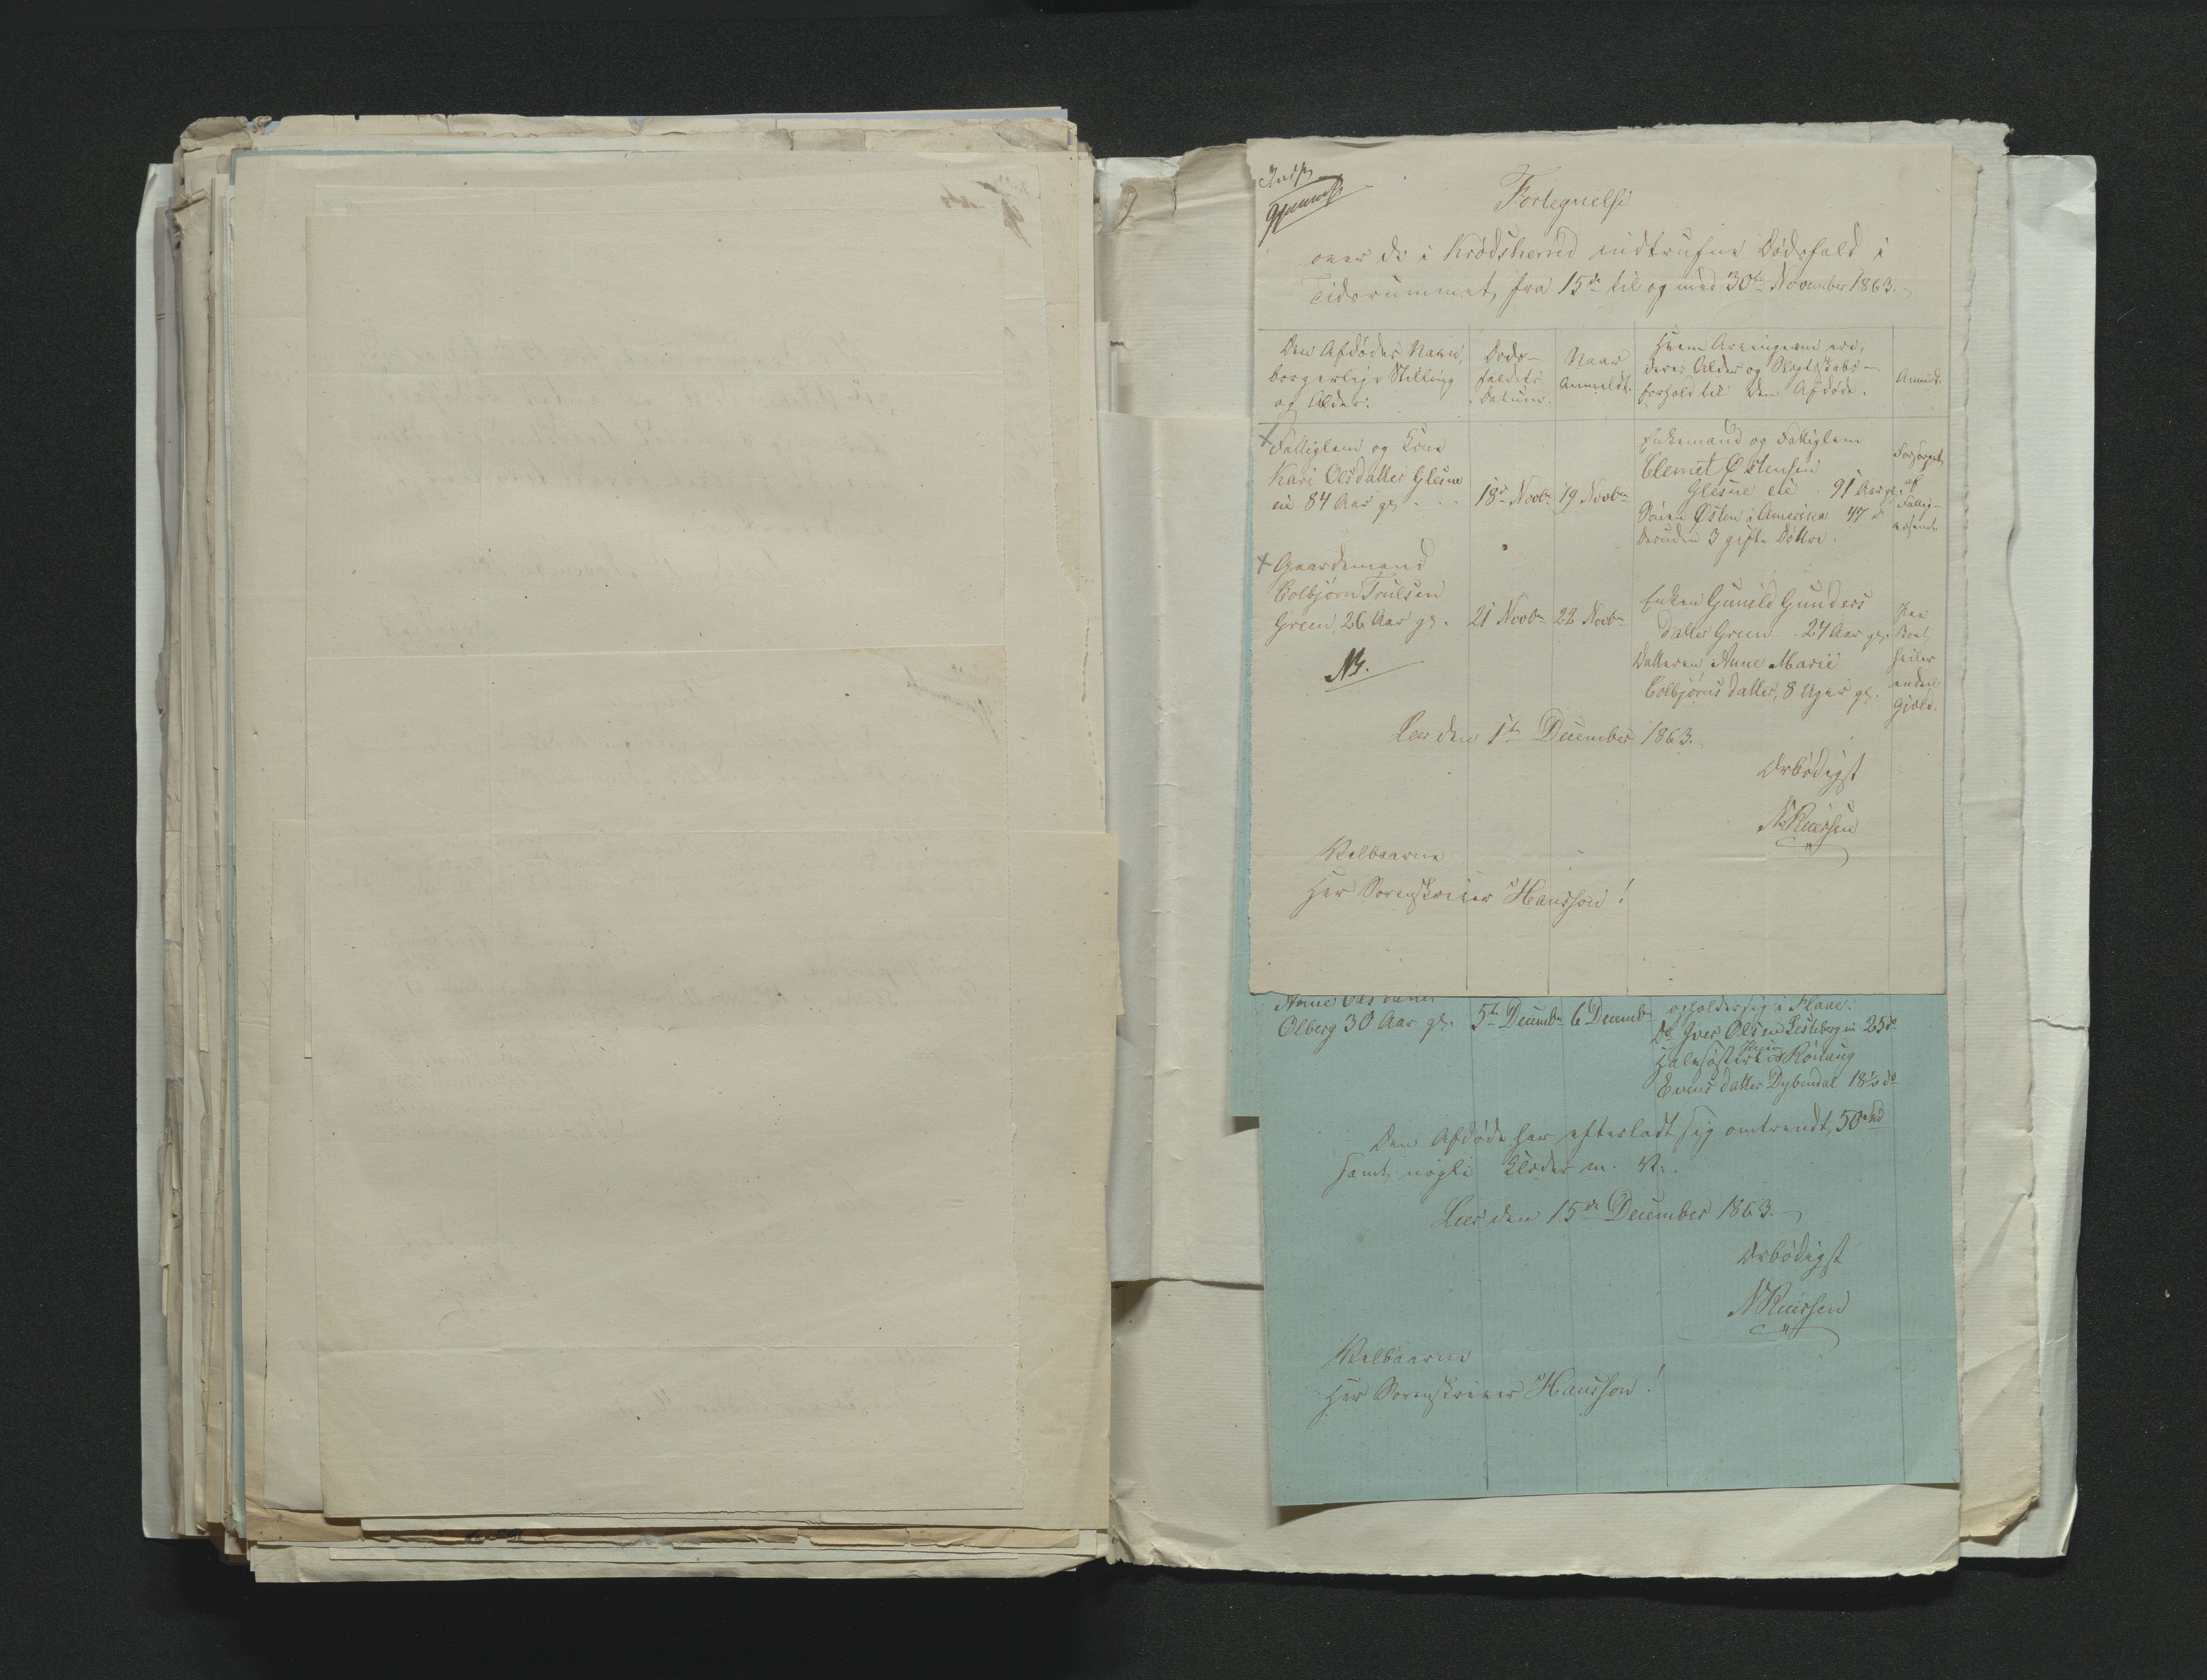 Fortegnelse
over de i Krødsherred indtrufne Dødsfald i
Tidsrummet fra 15de til og med 30te November 1863.
Den Afdødes Navn,
borgerlige Stilling
og Alder.
Døds-
faldets
Datum.
Naar
Anmeldt.
Hvem Arvingerne ere,
deres Alder og Slægtskabs-
forhold til den Afdøde.
Anmærk.
Fattiglem og Kone
Kari Olsdatter Glesne
eie 84 Aar gl.
18de Novbr
19 Novbr
Enkemand og Fattiglem
Clemet Østensen
Glesne eie 91 Aar gl.
Sønen Østen i Amerika 47 d
Desuden 3 gifte Døttre.
Forsørget
af
Fattig-
væsenet
Gaardmand
Colbjørn Trulsen
Green, 26 Aar gl.
21 Novbr
22 Novbr
Enken Gunild Gunders
datter Green 24 Aar gl.
Datteren Anne Marie
Colbjørns datter, 8 Uger gl.
Paa
Boet
hviler
endeel
Gjæld.
NB.
Leer den 1te December 1863.
Ærbødigst
N Ruersen
Velbaarne
Herr Sorenskriver Hansson!
Anne Olsdatter
Olberg 30 Aar gl.
5te Decembr
6 Decembr
opholder sig i Flaae.
Do Iver Olsen Lesteberg ei 25 do
Halvsøsteren Rønaug
Evens datter Dybendal 18 1/2 do
Den Afdøde har efterladt sig omtrendt 50
samt nogle Klæder m. V.
Leer den 15de December 1863.
Ærbødigst
N Ruersen
Velbaarne
Herr Sorenskriver Hansson!